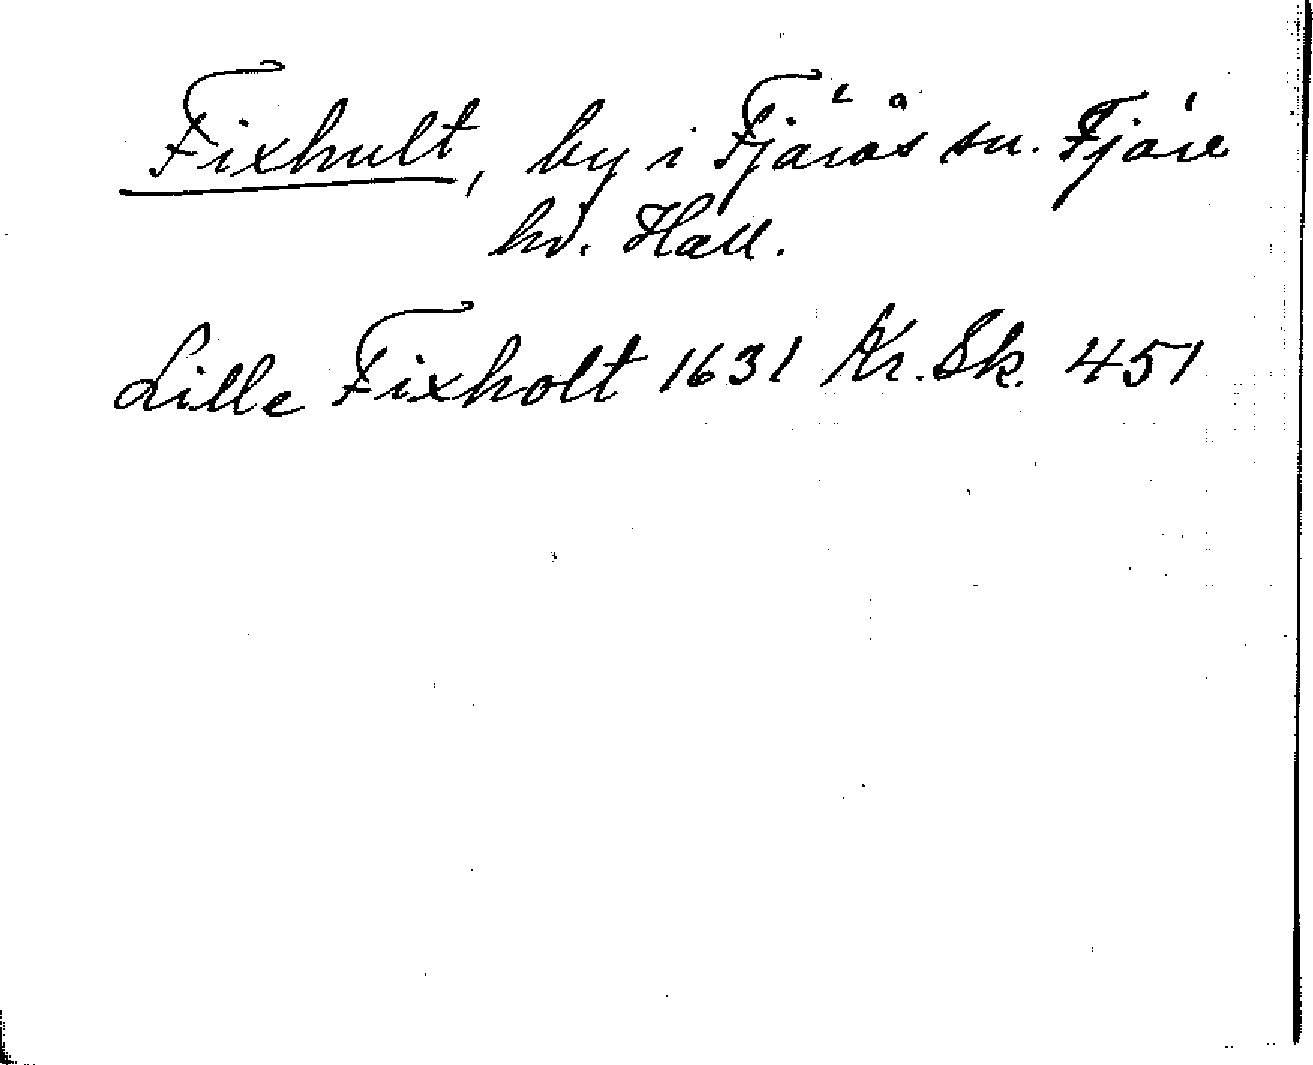 Fixhult, by i Fjärås sn. Fjäre
hd. Hall.
Lille Fixholt 1631 Kr. Sk. 451